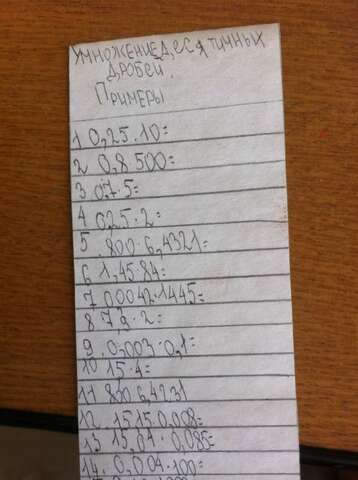 Умножение десятичных
дробей.
Примеры
1 0,25·10=
2 0,8·500=
3 0,7·5=
4 0,25·2=
5 .800·6,4321=
6 1,45·84=
7 00042·1445=
8 7,2·2=
9 0,003·0,1=
10 15·4=
11 800·6,4231
12 1515·0,008=
13 15,04·0,085=
14 0,004·100=